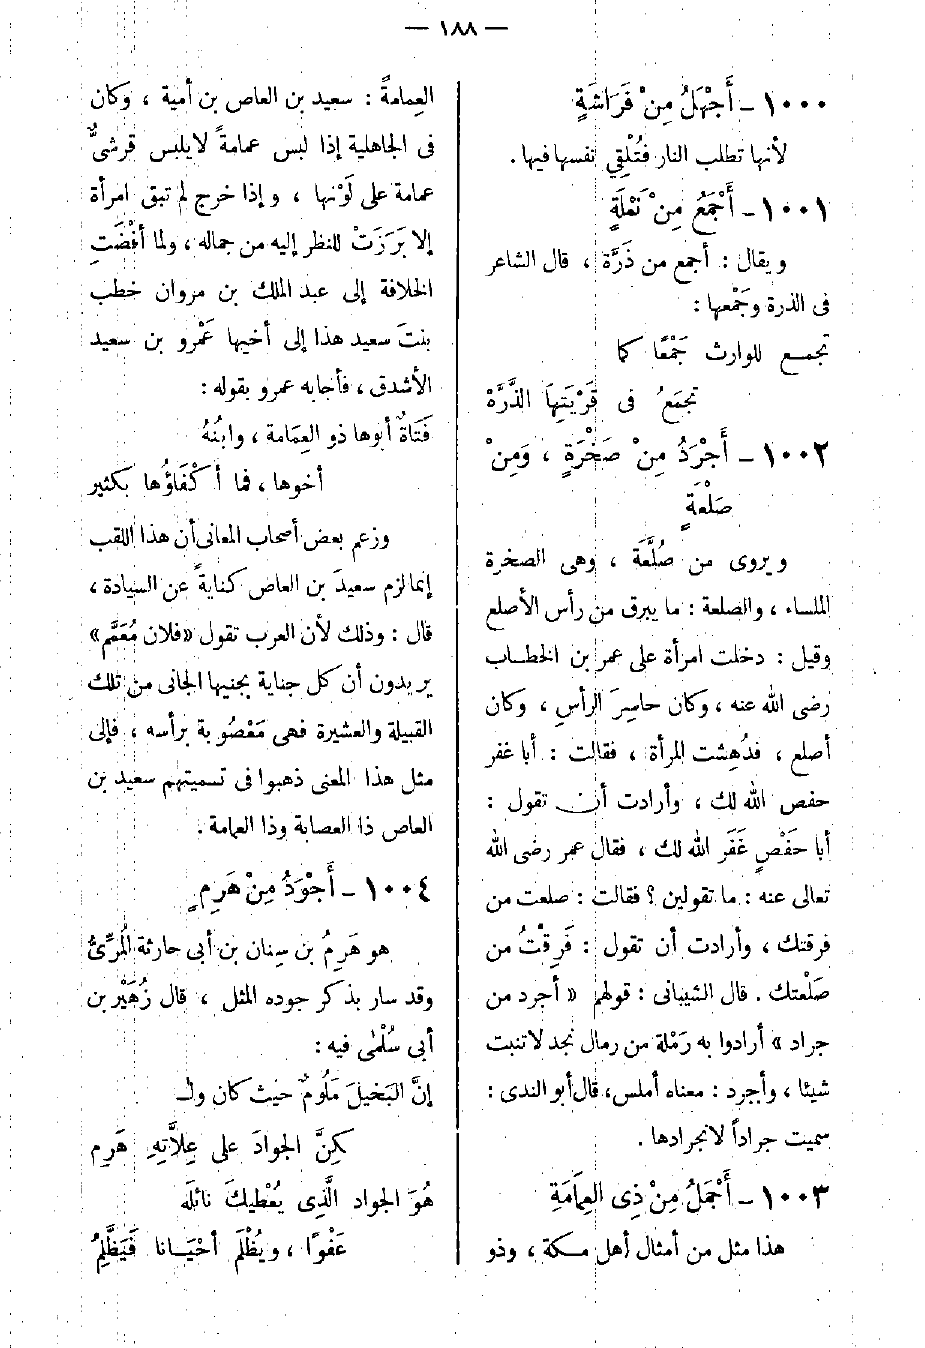 — ١٨٨ —
١٠٠٠ – أَجْهَلُ مِنْ فَرَاشَةٍ
لأنها تطلب النار فتُلْقِي نفسها فيها .
١٠٠١ – أَجْمَعُ مِنْ نَمْلَةٍ
ويقال : أجمع من ذَرَّة ، قال الشاعر
فى الذرة وجَمْعها :
تجمـــع للوارث جَمْعًا كما
تجمَعُ فى قَرْيَتِهَا الذَّرَّهْ
١٠٠٢ – أَجْرَدُ مِنْ صَخْرَةٍ ، وَمِنْ
صَلْعَةٍ
ويروى من صُلَّعَة ، وهى الصخرة
الملساء ، والصلعة : ما يبرق من رأس الأصلع
وقيل : دخلت امرأة على عمر بن الخطـاب
رضى الله عنه ، وكان حاسِرَ الرأسِ ، وكان
أصلع ، فدُهِشت المرأة ، فقالت : أبا غفر
حفص الله لك ، وأرادت أن تقول :
أبا حَفْصٍ غَفَر الله لك ، فقال عمر رضى الله
تعالى عنه : ما تقولين ؟ فقالت : صلعت من
فرقتك ، وأرادت أن تقول : فَرِقْتُ من
صَلْعتك . قال الشيبانى : قولهم « أجرد من
جراد » أرادوا به رَمْلة من رمال نجد لا تنبت
شيئا ، وأجرد : معناه أملس، قال أبو الندى :
سميت جراداً لانجرادها .
١٠٠٣ – أَجْمَلُ مِنْ ذِى العِمَامَةِ
هذا مثل من أمثال أهل مـكة ، وذو
العِمامةً : سعيد بن العاص بن أمية ، وكان
فى الجاهلية إذا لبس عمامةً لايلبس قرشىٌّ
عمامة على لَوْنها ، وإذا خرج لم تبق امرأة
إلا بَرَزَتْ للنظر إليه من جماله ، ولما أفْضَتِ
الخلافة إلى عبد الملك بن مروان خطب
بنتَ سعيد هذا إلى أخيها عَمْرو بن سعيد
الأشدق ، فأجابه عمرو بقوله :
فَتَاةٌ أبوها ذو العِمَامة ، وابنُهُ
أخوها ، فما أكْفَاؤُها بكثير
وزعم بعض أصحاب المعانى أن هذا اللقب
إنما لزم سعيدَ بن العاص كنايةً عن السيادة ،
قال : وذلك لأن العرب تقول «فلان مُعَمَّم»
يريدون أن كل جناية يجنيها الجانى من تلك
القبيلة والعشيرة فهى مَعْصُوبة برأسه ، فإلى
مثل هذا المعنى ذهبوا فى تسميتهم سعيد بن
العاص ذا العصابة وذا العمامة .
١٠٠٤ – أَجْوَدُ مِنْ هَرِمٍ
هو هَرِمُ بن سِنان بن أبى حارثة المُرِّىُّ
وقد سار بذكر جوده المثل ، قال زُهَيْر بن
أبى سُلْمٰى فيه :
إنَّ البَخيلَ مَلُومٌ حيث كان ولـ
كنَّ الجوادَ على عِلاَّتِهِ هَرِم
هُوَ الجواد الَّذِى يُعْطيكَ نائلَه
عَفْوًا ، ويُظْلَم أحْيَـانا فَيَظَّلِمُ